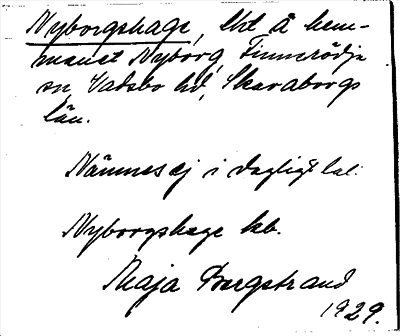 Nyborgshage, lht å hem-
manet Nyborg, Finnerödja
sn, Vadsbo hd, Skaraborgs
län.
Nämnes ej i dagligt tal.
Nyborgshage kb.
Maja Bergstrand
1929.